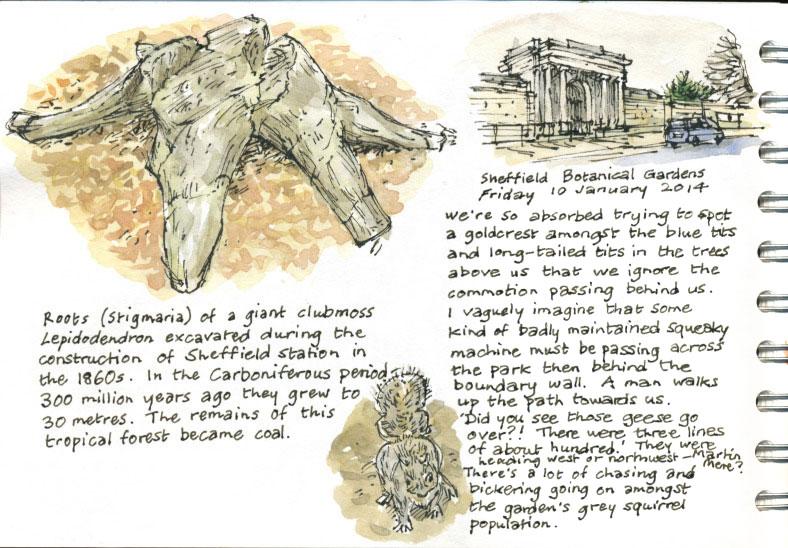 Roots (Stigmaria) of a giant clubmoss
Lepidodendron excavated during the
construction of Sheffield station in
the 1860s. In the Carboniferous period,
300 million years ago they grew to
30 metres. The remains of this
tropical forest became coal.
Sheffield Botanical Gardens
Friday 10 January 2014
We're so absorbed trying to spot
a goldcrest amongst the blue tits
and long-tailed tits in the trees
above us that we ignore the
commotion passing behind us.
I vaguely imagine that some
kind of badly maintained squeaky
machine must be passing across
the park then behind the
boundary wall. A man walks
up the path towards us.
'Did you see those geese go
over?! There were three lines
of about hundred.' They were
heading west or northwest – Martin
Mere?
There's a lot of chasing and
bickering going on amongst
the garden's grey squirrel
population.